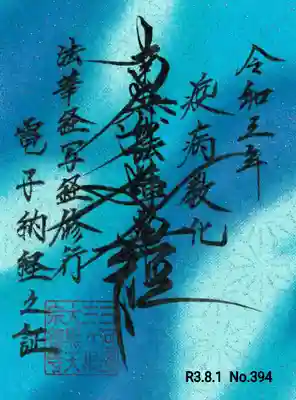 令和三年
疫病教化
南無妙法蓮華経
法華経写経修行
電子納経之証
R3.8.1 No.394